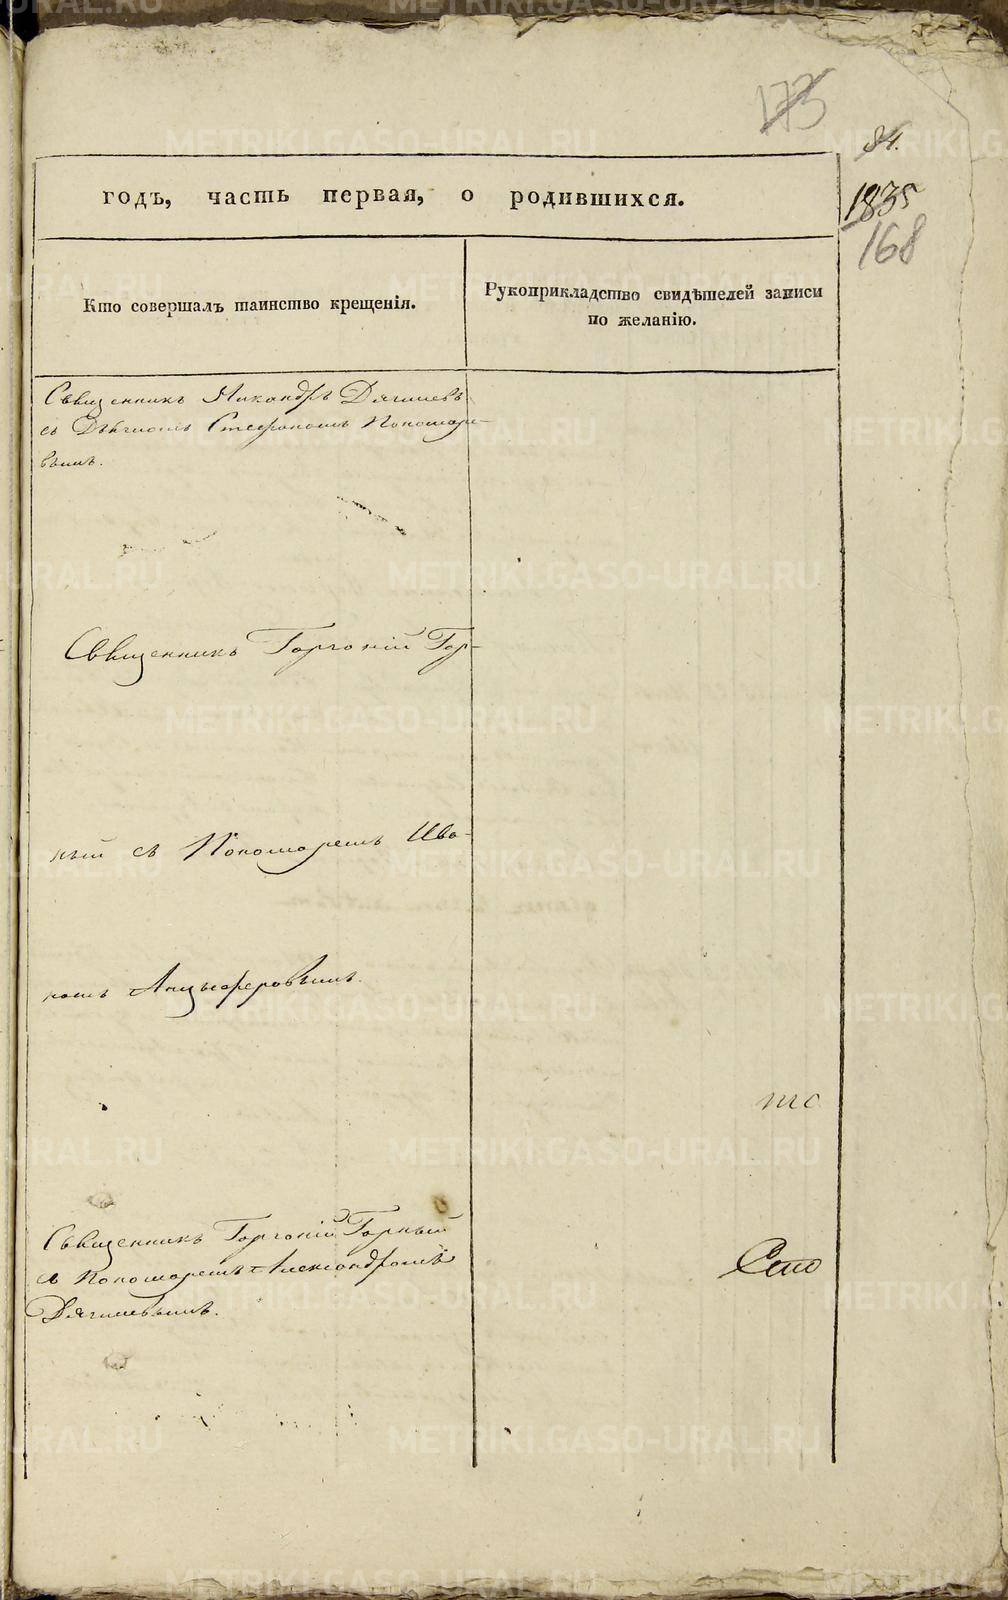 173
84.
1835
168
годъ, часть первая, о родившихся.
Кто совершалъ таинство крещенія.
Рукоприкладство свидѣтелей записи
по желанію.
Священникъ Никандръ Дягилевъ
съ Стефаномъ Пономаре-
вымъ.
Священникъ Горгоній Гор-
ный съ Пономаремъ Ива-
номъ Анцыферовымъ.
Священникъ Горгоній Горный
съ Пономаремъ Александромъ
Дягилевымъ.
METRIKI.GASO-URAL.RU